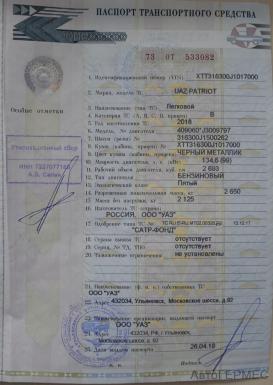 ПАСПОРТ ТРАНСПОРТНОГО СРЕДСТВА
73 ОТ 533082
Особые отметки
1. Идентификационный номер (VIN) ХТТ316300J1017000
2. Марка, модель ТС UAZ PATRIOT
3. Наименование (тип ТС) Легковой
4. Категория ТС (А, В, С, D, прицеп) В
5. Год изготовления ТС 2018
6. Модель, № двигателя 409060* J3009797
7. Шасси (рама) № 316300J0
8. Кузов (кабина, прицеп) № ХТТ316300J1017000
9. Цвет кузова (кабины, прицепа) ЧЕРНЫЙ МЕТАЛЛИК
10. Мощность двигателя, л. с. (кВт) 134,6 (99)
11. Рабочий объем двигателя, куб. см 2 693
12. Тип двигателя БЕНЗИНОВЫЙ
13. Экологический класс Пятый
14. Разрешенная максимальная масса, кг 2 650
15. Масса без нагрузки, кг 2 125
16. Изготовитель ТС (страна)
РОССИЯ, ООО "УАЗ"
17. Одобрение типа ТС №
"САТР-ФОНД"
18. Страна вывоза ТС отсутствует
19. Серия, № ТД, ТПО отсутствует
20. Таможенные ограничения не установлены
21. Наименование (ф. и. о.) собственника ТС
ООО "УАЗ"
22. Адрес 432034, Ульяновск, Московское шоссе, д.92
23. Наименование организации, выдавшей паспорт
ООО "УАЗ"
24. Адрес 432034, РФ, г.Ульяновск,
Московское шоссе, д.92
25. Дата выдачи паспорта 26.04.18
Подпись
Утилизационный сбор
АвтоГЕРМЕС